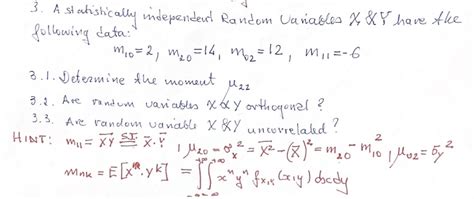 3. A statistically independent Random Variables X & Y have the
following data:
m₁₀=2, m₂₀=14, m₀₂=12, m₁₁=-6
3.1. Determine the moment μ₂₂
3.2. Are random variables X & Y orthogonal?
3.3. Are random variable X & Y uncorrelated?
HINT: m₁₁ = X̅Y̅ S.I. = X̅·Y̅, μ₂₀=σₓ² = X̅²̅ - (X̅)² = m₂₀ - m₁₀², μ₀₂=σy²
mₙₖ = E[Xⁿ.Yᵏ] = ∫∫ xⁿ yⁿ (x,y) dxdy